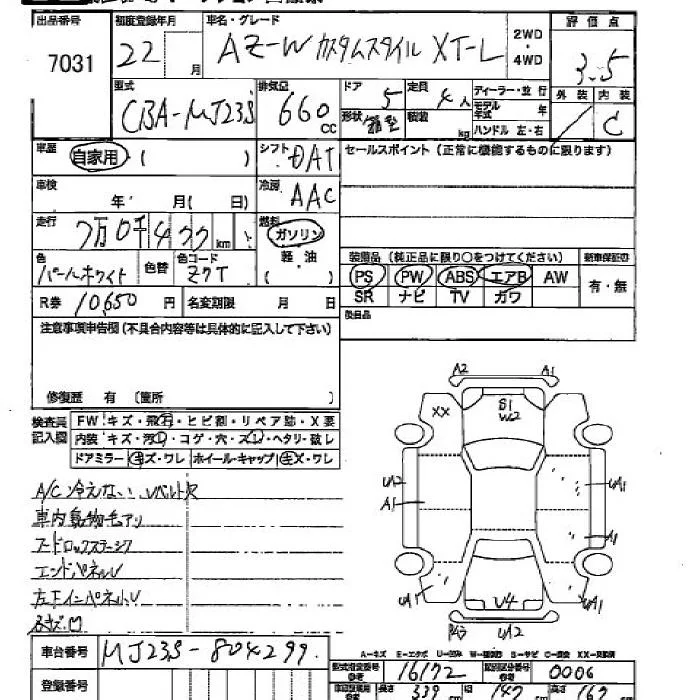 出品番号 初度登録年月 車名・グレード 評価点
7031 22 月 AZ-W カスタムスタイル XT-L 2WD・4WD 3.5
型式 排気量 ドア 5 定員 4人 ディーラー・並行 外装 内装
CBA-MJ23S 660 cc 形状 箱型 積載 kg モデル年式 年 C
ハンドル 左・右
車歴 自家用 ( ) シフト DAT セールスポイント(正常に機能するものに限ります)
車検 年 月( 日) 冷房 AAC
走行 7万0千433 km 燃料 ガソリン
軽油
( )
色 パールホワイト 色替 色コード ZQT
装備品(純正品に限り〇をつけてください) 新車保証書
PS PW ABS エアB AW 有・無
SR ナビ TV ガワ
R券 10,650 円 名変期限 月 日 後日品
注意事項申告欄(不具合内容等は具体的に記入して下さい)
修復歴 有 (箇所 )
検査員記入欄 FW キズ・飛石・ヒビ割・リペア跡・X要
内装 キズ・汚レ・コゲ・穴・スレ・ヘタリ・破レ
ドアミラー キズ・ワレ ホイール・キャップ キズ・ワレ
A/C冷えない、Vベルト欠
車内動物毛アリ
エンドパネルU
左下インパネ小U
A2 A1
XX S1
W2
UA2 UA1
A1 A1
UA1 U4 UA1
UA2
A-キズ E-エクボ U-凹み W-補修跡 S-サビ C-腐食 XX-交換済
車台番号 MJ23S-804299 型式指定番号 16172 類別区分番号 0006
登録番号 長さ 339 幅 147 高さ